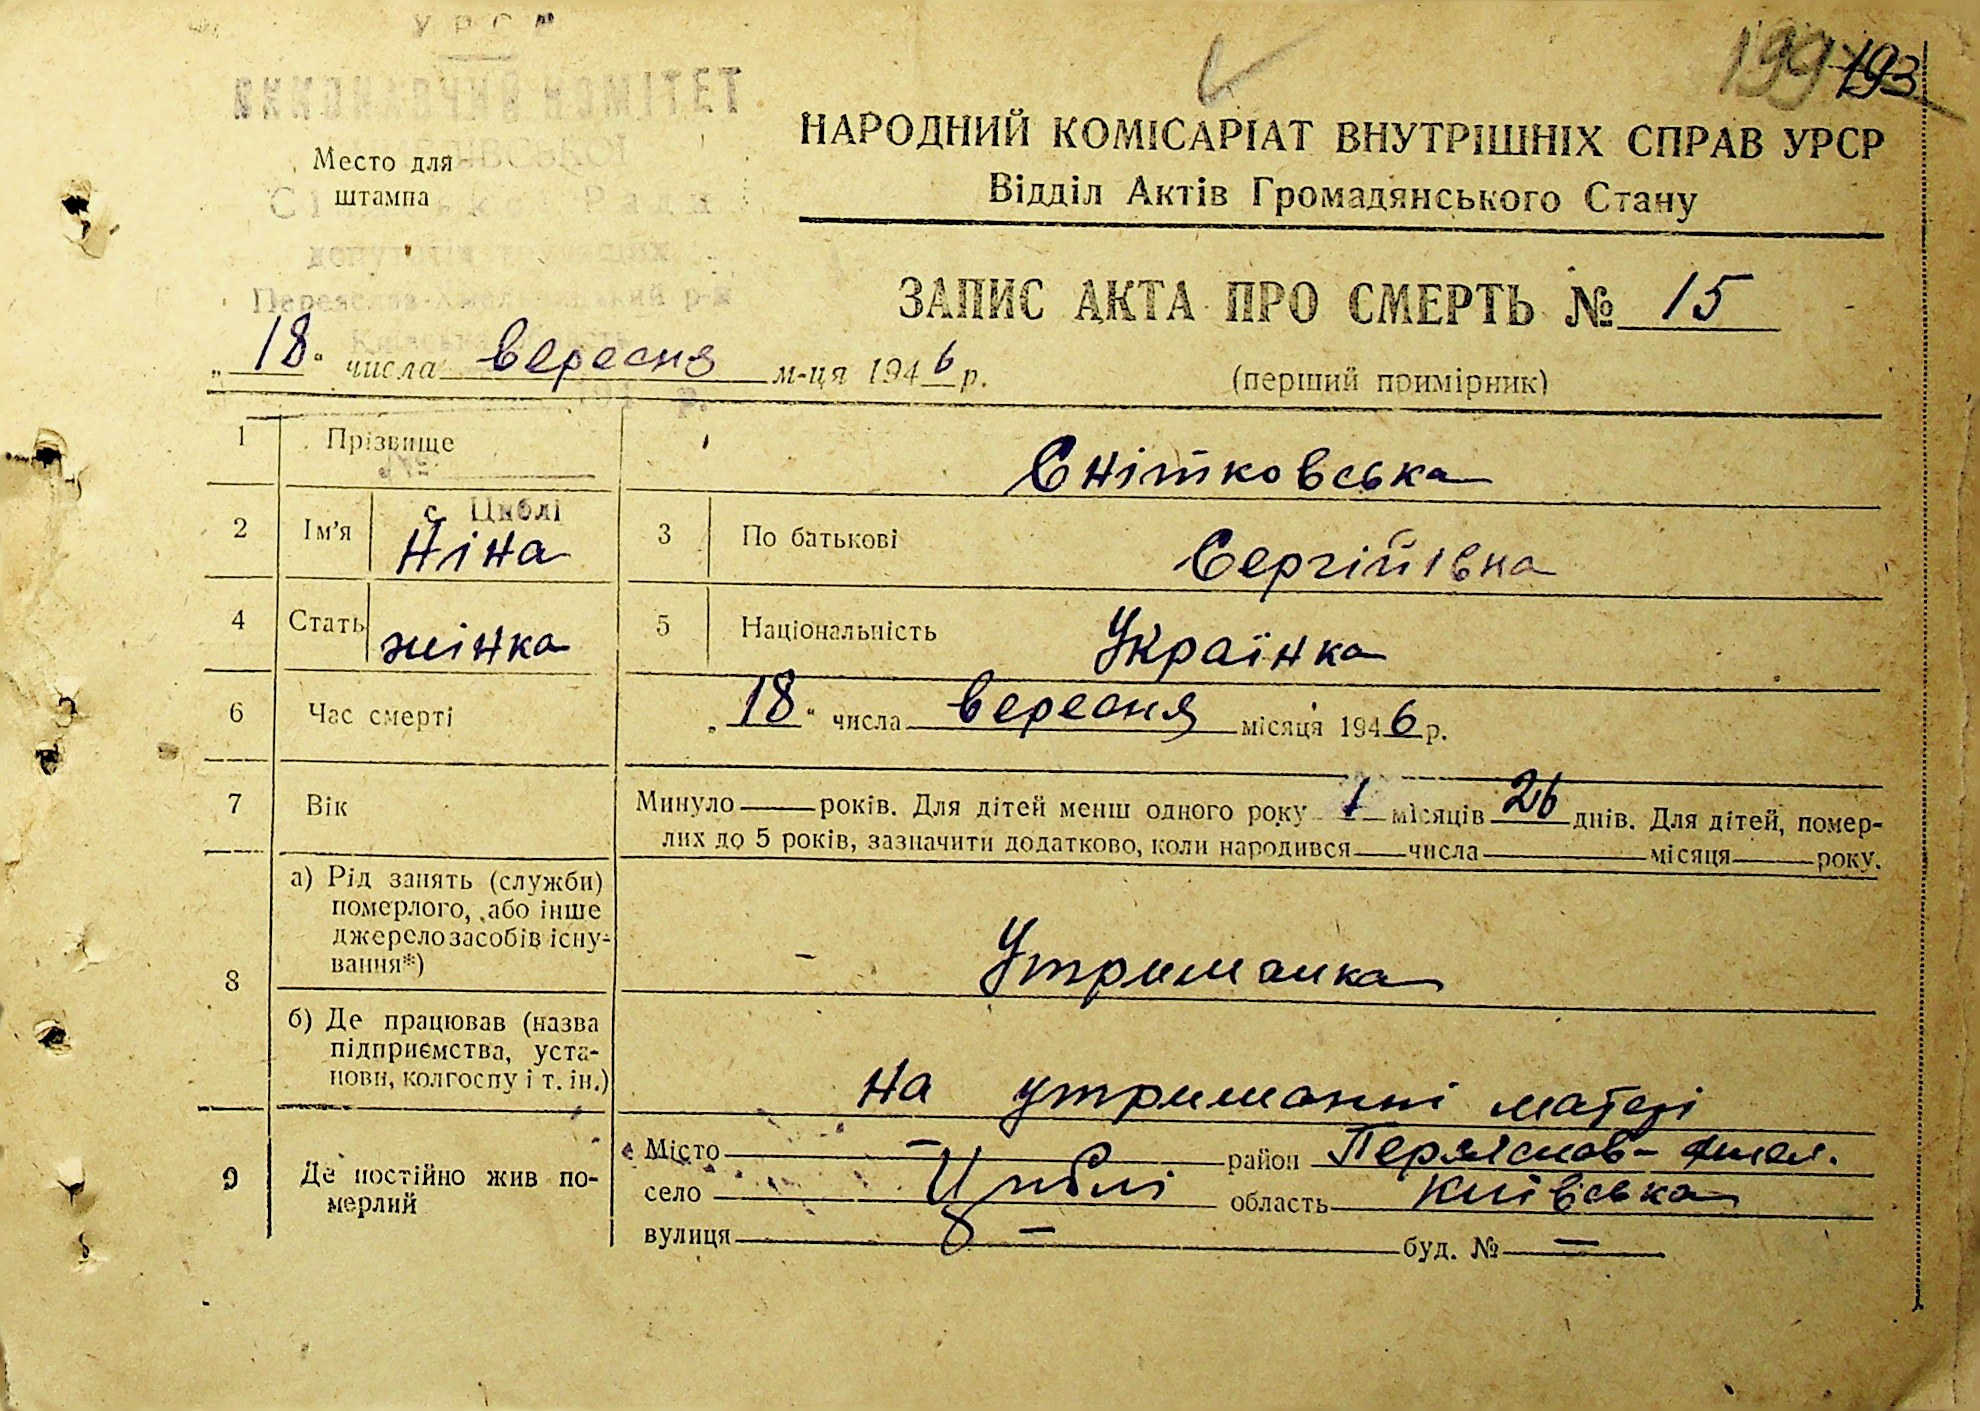 УРСР
ВИКОНАВЧИЙ КОМІТЕТ
Место для
штампа
Ради
депутатів трудящих
Переяслав-Хмельницький р-н
199 193
НАРОДНИЙ КОМІСАРІАТ ВНУТРІШНІХ СПРАВ УРСР
Відділ Актів Громадянського Стану
ЗАПИС АКТА ПРО СМЕРТЬ № 15
„18“ числа вересня м-ця 1946 р.
(перший примірник)
1 Прізвище Снітковська
с. Циблі
2 Ім'я Ніна 3 По батькові Сергіївна
4 Стать жінка 5 Національність Українка
6 Час смерті „18“ числа вересня місяця 1946 р.
7 Вік Минуло — років. Для дітей менш одного року 1 місяців 26 днів. Для дітей, помер-
лих до 5 років, зазначити додатково, коли народився — числа — місяця — року.
8 а) Рід занять (служби)
померлого, або інше
джерело засобів існу-
вання*) - Утриманка
б) Де працював (назва
підприємства, уста-
нови, колгоспу і т. ін.) На утриманні матері
9 Де постійно жив по-
мерлий
Місто — район Переяслав-Хмел.
село Циблі область Київська
вулиця — буд. № —